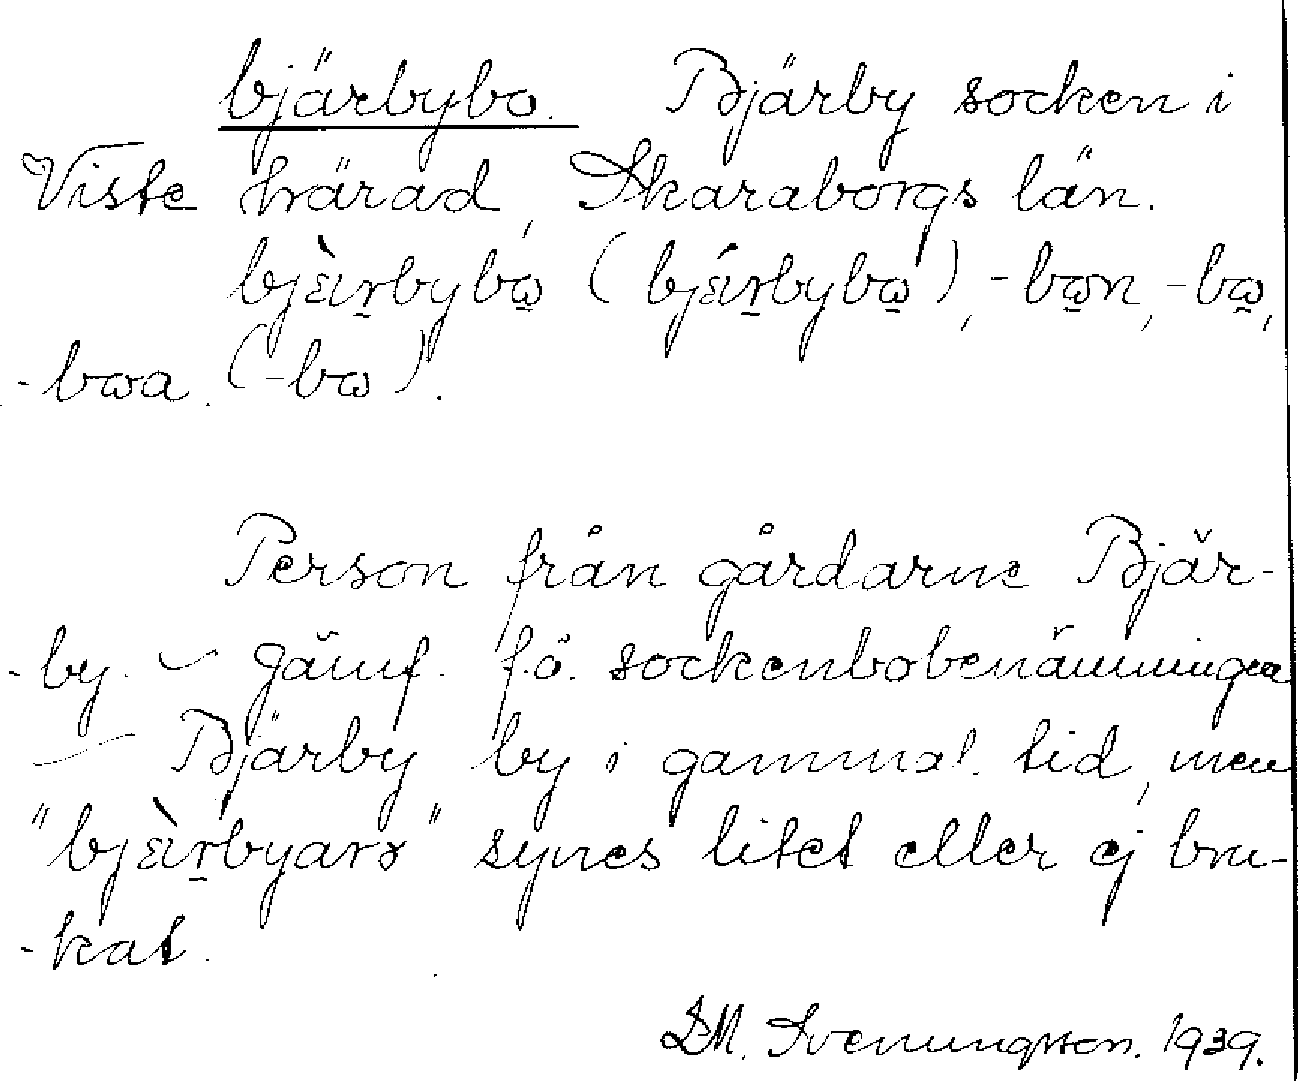 bjärbybo. Bjärby socken i
Viste härad, Skaraborgs län.
bjɛ̀ırbybɷ (bjɛ́ırbybɷ), -bɷn, -bɷ,
-bɷa. (-bɷ).
Person från gårdarne Bjär-
-by. ~ Jämf. f.ö. sockenbobenämningen
— Bjärby by i gammal tid, men
"bjɛ̀ırbyarə" synes litet eller ej bru-
-kat.
D.M. Svenungsson. 1939.